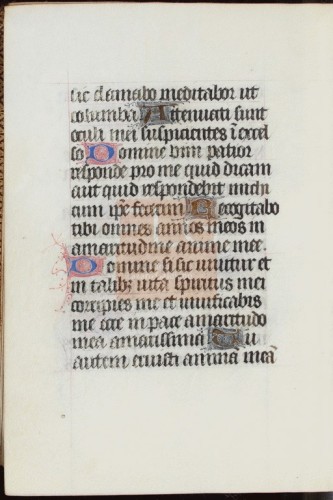 sic clamabo meditabor ut
columba Attenuati sunt
oculi mei suspicientes ī excel
so Domine vim patior
responde pro me quid dicam
aut quid respondebit michi
cum ip̄e fecerim Recogitabo
tibi omnes annos meos in
amaritudine anime mee.
Domine si sic vivitur et
in talibꝫ vita spiritus mei
corripies me et vivificabis
me ecce in pace amaritudo
mea amarissima Tu
autem eruisti animā meā